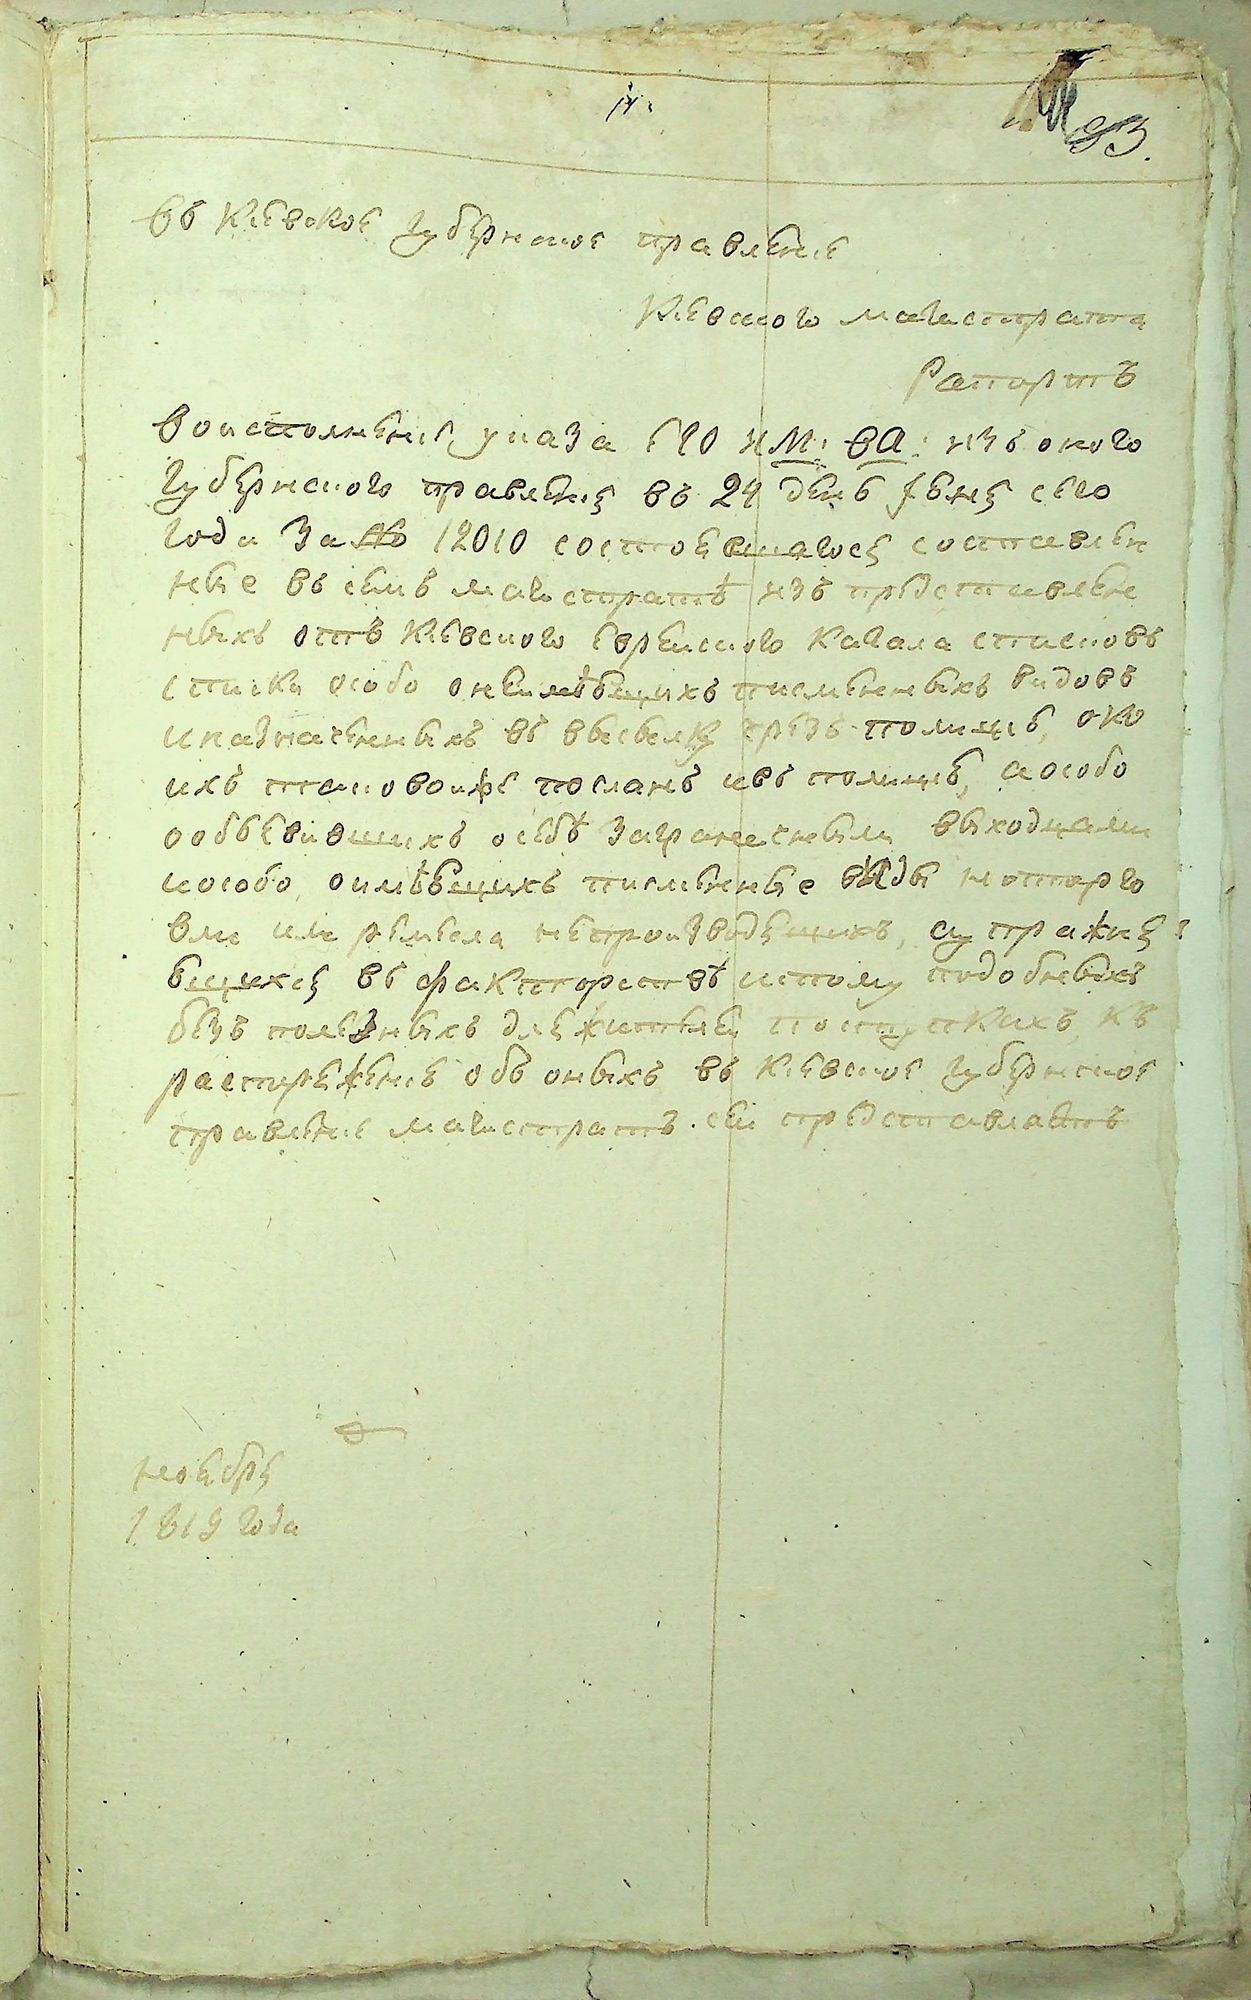 93.
Въ Киевское губернское правление
Киевского магистрата
Рапортъ
Во исполнение указа Его ИМ: ВА: изъ оного
губернского правления въ 24 день июня сего
года за № 12010 состоявшагося составлен
ные въ семъ магистратѣ изъ представлен
ныхъ отъ Киевского Еврейского Кагала списковъ
списки особо о неимѣющихъ письменныхъ видовъ
и назначенныхъ въ высылку чрезъ полицию, о ко
ихъ таковой же посланъ и въ полицию, а особо
о объявившихъ о себѣ заграничными выходцами
и особо, о имѣющихъ письменные виды но торго
вли или ремесла непроизводящихъ, а упражня
ющихся въ факторствѣ и тому подобныхъ
безъ полезныхъ для жителей поступкихъ, къ
распоряжению объ оныхъ въ Киевское губернское
правление магистратъ сей представляетъ
ноября
1819 года